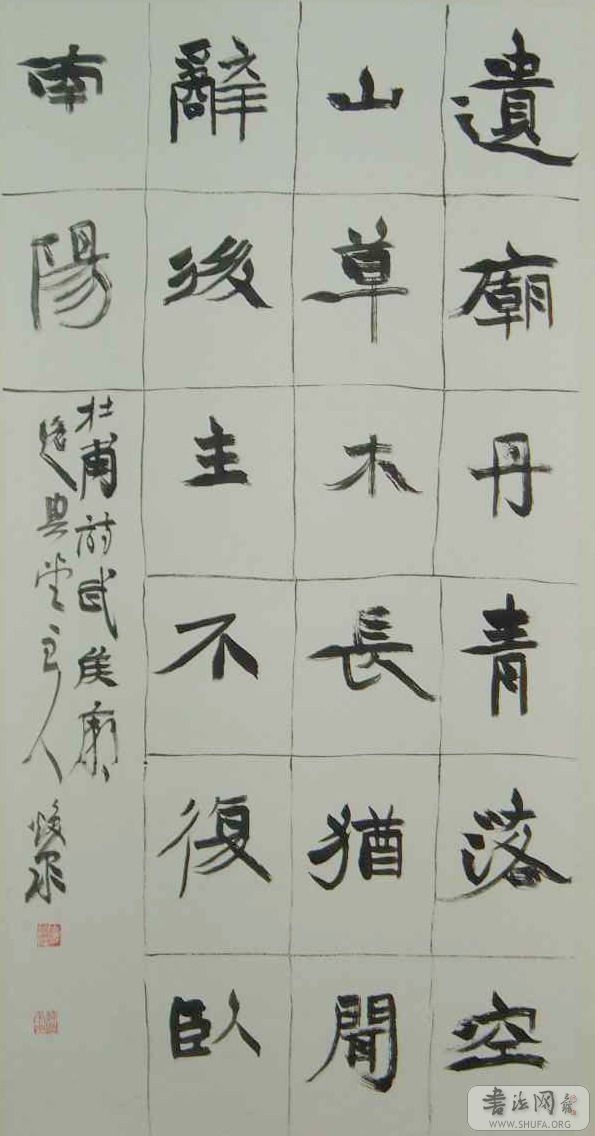 遺廟丹青落空
山草木長猶聞
辭後主不復臥
南陽
杜甫詩武侯廟
堂主人
書法网
WWW.SHUFA.ORG